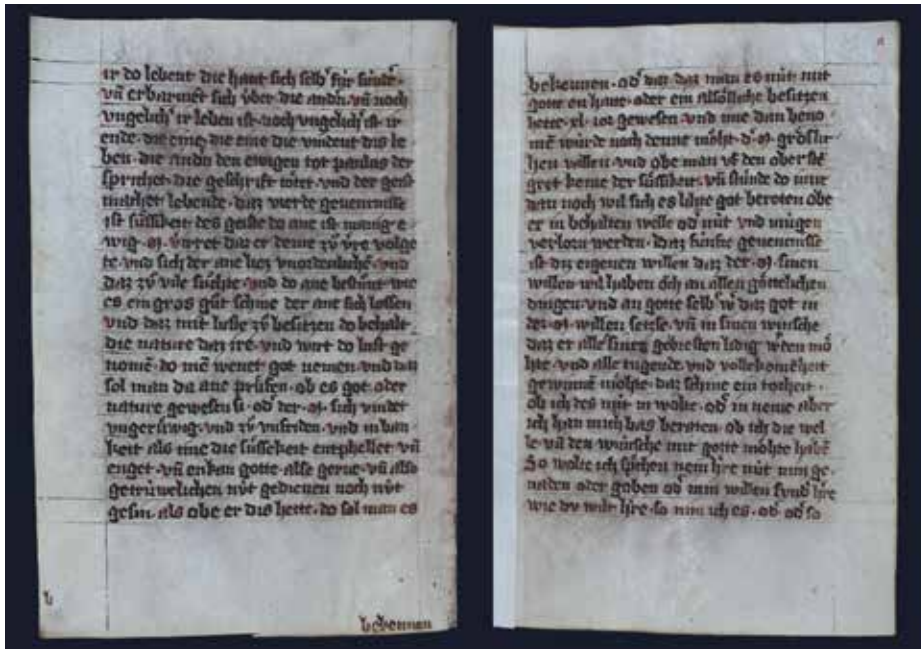 ir do lebent die hant sich selb für sünder.
vn̄ erbarmet sich vber die andn̄. vn̄ noch
vngelich ir leben ist. noch vngelich ist ir
ende. die eine die eine die vindent dis le
ben. die andn̄ den ewigen tot paulus der
sprichet. die geschrift tötet. vnd der geist
machet lebende. daz vierde gevencnisse
ist süssikeit des geistes do ane ist manig e
wig. M. vret daz er deme zů vil volge
te. vnd sich der ane liez vnordenliche. vnd
daz zů vile süchte. vnd do ane bestünt wie
es ein gros gůt schine der ane sich lossen
vnd daz mit luste zů besitzen do behalt
die nature daz ire. vnd wirt do lust ge
nomē. do mē wenet got nemen. vnd daz
sol man da ane prüfen. ob es got. oder
nature gewesen si. od͛ der. M. sich vindet
vngerůwig. vnd zů vnfriden. vnd in ban
keit als ime die süssikeit entphellet vn̄
enget. vn̄ enkan gotte. alse gerne. vn̄ also
getrüwelichen nüt gedienen noch nüt
gesin. als obe er dis hette. do sol man es
b
bekennan
bekennen. od͛ daz daz man es nüt mit
gotte en hatte. oder ein alsölliche besitzen
hette. xl. ior gewesen. vnd ime dan beno
mē würde noch denne möht. d͛. M. gröslic
hen vallen. vnd obe man vf den oberste
gret keme der süssikeit. vn̄ stünde do inne
dan noch wil sich es lihte got beroten obe
er in behalten welle od͛ nüt vnd mügen
verlorn werden. daz fünfte gevencnisse
ist dis eigenen willen daz der. M. sinen
willen wil haben öch an allen göttelichen
dingen. vnd an gotte selb͛ vn̄ daz got in
des. M. willen setzte. vn̄ in sinen wunsche
daz er alle sinez gebresten lidig w͛den mö
hte. vnd alle tugende. vnd vollekomēheit
gewinnē möhte. daz schine ein torheit.
ob ich des nüt in wolte. od͛ in neme aber
ich han mich bas beroten. ob ich die wel
le vn̄ den wunsche mit gotte möhte habē
So wolte ich sprechen nein hre nüt min ge
naden oder goben od͛ min willen sund͛ hre
wie dv wilt hre. so nim ich es. od͛ od͛ so